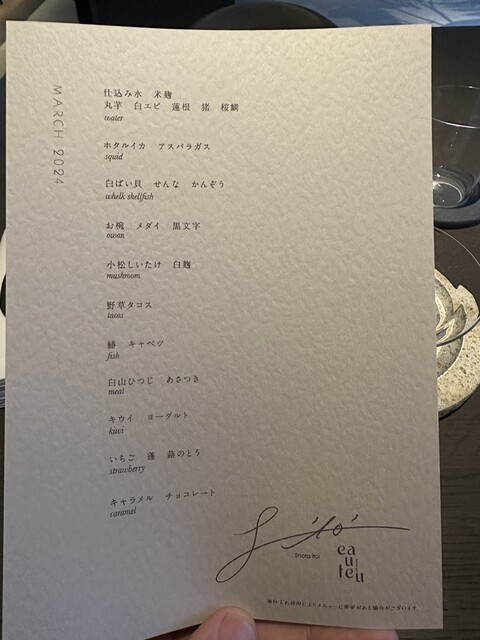 MARCH 2024
仕込み水 米麹
丸芋 白エビ 蓮根 猪 桜鯛
water
ホタルイカ アスパラガス
squid
白ばい貝 せんな かんぞう
whelk shellfish
お椀 メダイ 黒文字
owan
小松しいたけ 白麹
mushroom
野草タコス
tacos
鰆 キャベツ
fish
白山ひつじ あさつき
meat
キウイ ヨーグルト
kiwi
いちご 蓬 蕗のとう
strawberry
キャラメル チョコレート
caramel
Shota Itoi
eau
feu